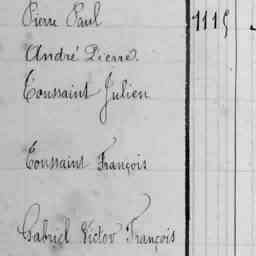 Pierre Paul 1115
André Pierre
Toussaint Julien
Toussaint François
Gabriel Victor François